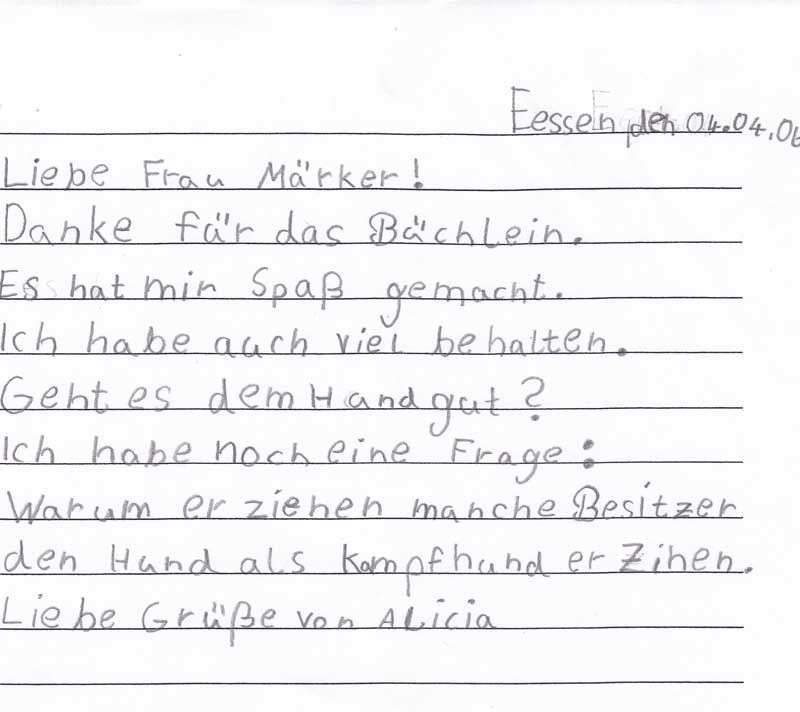 Eesseln den 04.04.06
Liebe Frau Märker!
Danke für das Büchlein.
Es hat mir Spaß gemacht.
Ich habe auch viel behalten.
Geht es dem Hund gut?
Ich habe noch eine Frage:
Warum er ziehen manche Besitzer
den Hund als Kampfhund er Zihen.
Liebe Grüße von ALicia